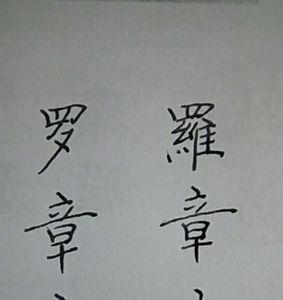 羅章
罗章